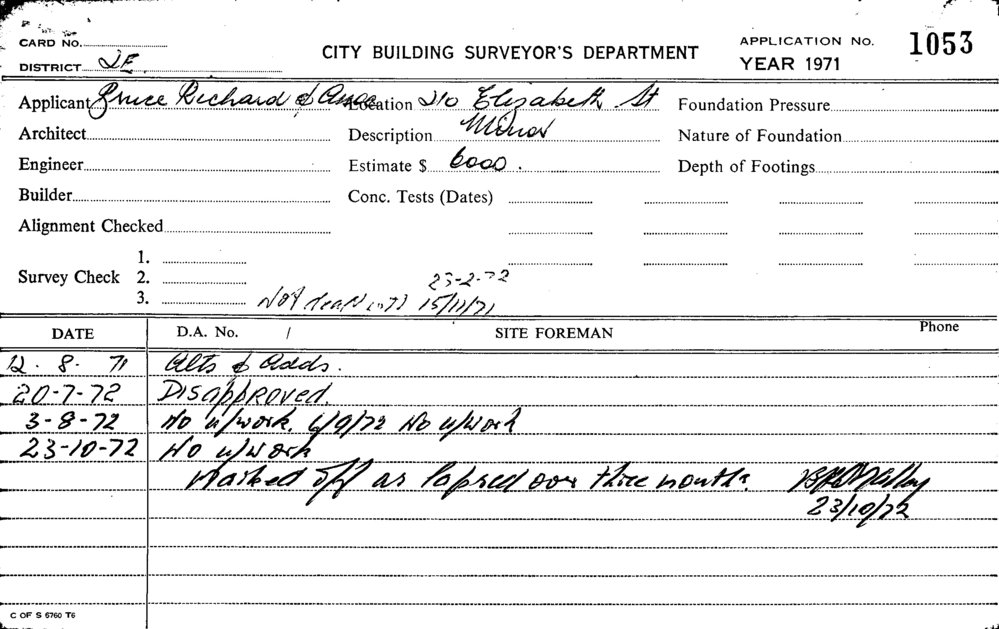 CARD NO.
DISTRICT 2E
CITY BUILDING SURVEYOR'S DEPARTMENT
APPLICATION No. 1053
YEAR 1971
Applicant Bruce Richard & Assoc Location 210 Elizabeth St Foundation Pressure
Architect Description Minor Nature of Foundation
Engineer Estimate $ 6000. Depth of Footings
Builder Conc. Tests (Dates)
Alignment Checked
1.
Survey Check 2. 23-2-72
3. Not 15/11/71
DATE D.A. No. / SITE FOREMAN Phone
12. 8. 71 Alts & Adds.
20-7-72 Disapproved.
3-8-72 No u/work. 6/9/72 No u/work
23-10-72 No u/work
Marked off as lapsed over three months.
23/10/72
C OF S 6760 T6